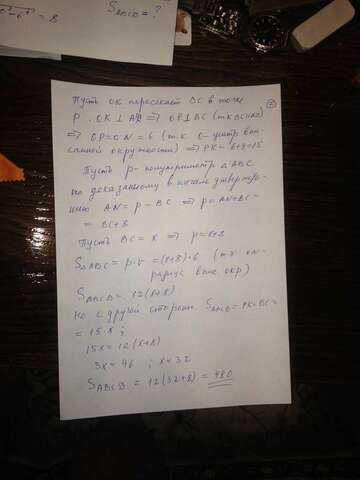 S_ABCD = ?
= 8
Пусть OK пересекает BC в точке
P. OK ⊥ AD ⇒ OP ⊥ BC (т.к BC||AD)
⇒ OP = ON = 6 (т.к O-центр впи-
санной окружности) ⇒ PK = 6+9=15
Пусть p - полупериметр ΔABC
по доказанному в начале утвержде-
нию AN = p - BC ⇒ p = AN + BC =
= BC + 8
Пусть BC = x ⇒ p = x + 8
S_ΔABC = p·r = (x+8)·6 (т.к ON-
радиус впис. окр)
S_ABCD = 12(x+8)
Но с другой стороны S_ABCD = PK·BC =
= 15·x ;
15x = 12(x+8)
3x = 96 ; x = 32
S_ABCD = 12(32+8) = 480